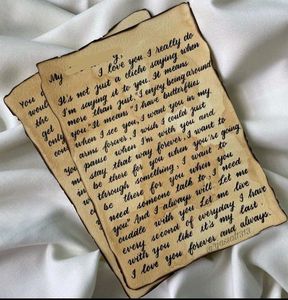 My y,
I love you I really do
It's not just a cliche saying when
I'm saying it to you It means
more than just I enjoy being around
you It means I have butterflies
when I see you I want you in my
life forever I wish I could just
pause when I'm with you and
stay that way forever I want to
be there for you when you're going
through something I want to
be there for you when you
need someone to talk to, I love
you And I always will let me
every second you Let me live
with you like it's my last I have
I love you forever and always.
You
would
the
get
only
cost
you